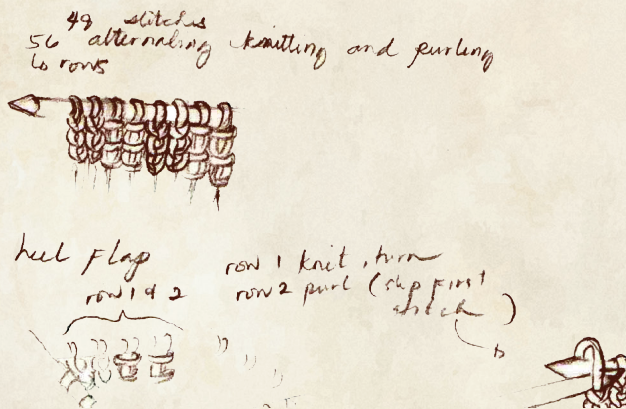 48 stitches
56 alternating knitting and purling
10 rows
heel flap
row 1 & 2
row 1 knit, turn
row 2 purl (slip first
stitch)